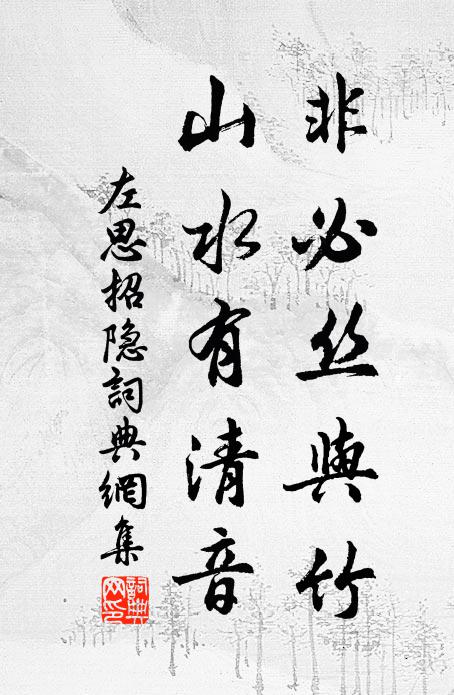 非必丝與竹
山水有清音
左思招隐詞典網集
詞典网印